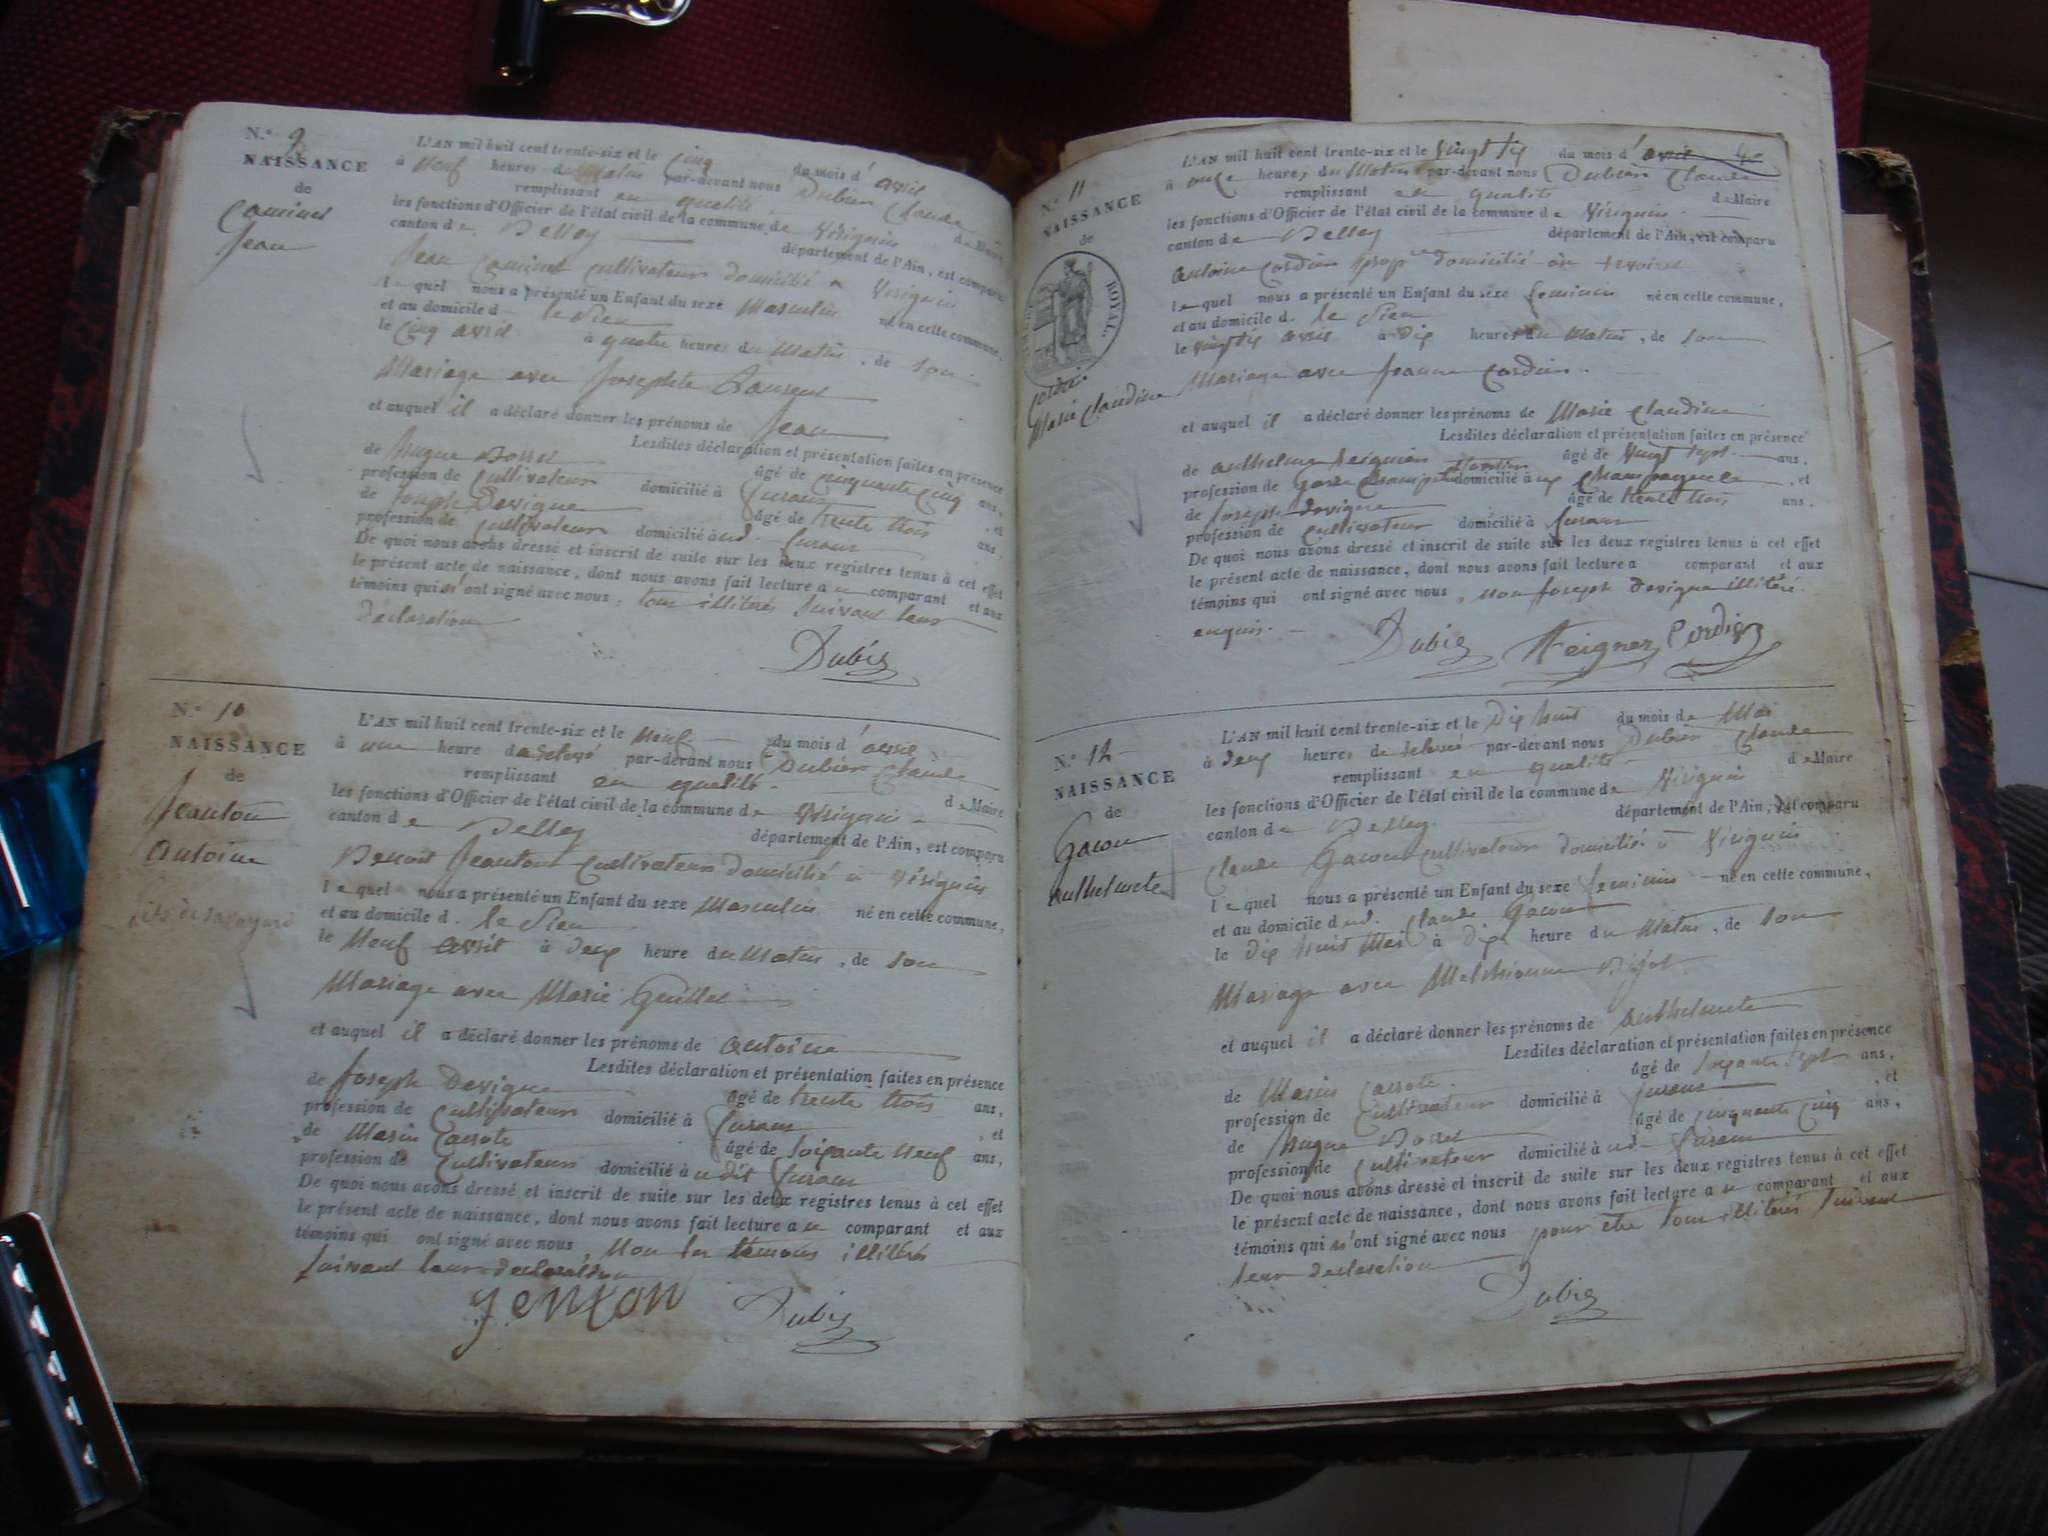 N.º 9
NAISSANCE
de
Caminet
Jean
L'AN mil huit cent trente-six et le cinq du mois d'avril
à neuf heures du matin par-devant nous Dubien Claude
remplissant en qualité de Maire
les fonctions d'Officier de l'état civil de la commune de Virignin
canton de Belley département de l'Ain, est comparu
Jean Caminet cultivateur domicilié a Virignin
lequel nous a présenté un Enfant du sexe Masculin né en cette commune,
et au domicile d. le sien
le cinq avril à quatre heures du Matin, de son
Mariage avec Josephte
et auquel il a déclaré donner les prénoms de Jean
Lesdites déclaration et présentation faites en présence
de hugue Bosset âgé de cinquante cinq ans,
profession de cultivateur domicilié à Lurans, et
de Joseph Devigne âgé de trente trois ans.
profession de cultivateur domicilié à ud. Lurans
De quoi nous avons dressé et inscrit de suite sur les deux registres tenus à cet effet
le présent acte de naissance, dont nous avons fait lecture au comparant et aux
témoins qui n'ont signé avec nous, tous illitérés suivant leur
déclaration
Dubien
N.º 10
NAISSANCE
de
Jeanton
Antoine
L'AN mil huit cent trente-six et le neuf du mois d'avril
à une heure de relevé par-devant nous Dubien Claude
remplissant en qualité de Maire
les fonctions d'Officier de l'état civil de la commune de Virignin
canton de Belley département de l'Ain, est comparu
Benoit Jeanton cultivateur domicilié a Virignin
lequel nous a présenté un Enfant du sexe Masculin né en cette commune,
et au domicile d. le sien
le neuf avril à deux heure du Matin, de son
Mariage avec Marie Guillet
et auquel il a déclaré donner les prénoms de antoine
Lesdites déclaration et présentation faites en présence
de Joseph Devigne âgé de trente trois ans,
profession de cultivateur domicilié à Lurans, et
de Marin Carrote âgé de soixante neuf ans,
profession de cultivateur domicilié à udit Lurans
De quoi nous avons dressé et inscrit de suite sur les deux registres tenus à cet effet
le présent acte de naissance, dont nous avons fait lecture au comparant et aux
témoins qui ont signé avec nous, non les témoins illitérés
suivant leur declaration
Jenton Dubien
N.º 11
NAISSANCE
de
ROYAL.
Cordier
Marie Claudine
L'AN mil huit cent trente-six et le vingt six du mois d'avril
à onze heures du Matin par-devant nous Dubien Claude
remplissant en qualité de Maire
les fonctions d'Officier de l'état civil de la commune de Virignin
canton de Belley département de l'Ain, est comparu
antoine Cordier prop.re domicilié
lequel nous a présenté un Enfant du sexe feminin né en cette commune,
et au domicile d. le sien
le vingt six avril à dix heures du Matin, de son
Mariage avec Jeanne Cordier.
et auquel il a déclaré donner les prénoms de Marie Claudine
Lesdites déclaration et présentation faites en présence
de anthelme âgé de vingt sept ans,
profession de Garde Champêtre domicilié à, et
de Joseph Devigne âgé de trente trois ans.
profession de cultivateur domicilié à Lurans
De quoi nous avons dressé et inscrit de suite sur les deux registres tenus à cet effet
le présent acte de naissance, dont nous avons fait lecture a comparant et aux
témoins qui ont signé avec nous, non Joseph Devigne illitéré
enquis.
Dubien Cordier
N.º 12
NAISSANCE
de
Gacon
anthelmete
L'AN mil huit cent trente-six et le dix huit du mois de Mai
à deux heures de relevé par-devant nous Dubien Claude
remplissant en qualité de Maire
les fonctions d'Officier de l'état civil de la commune de Virignin
canton de Belley département de l'Ain, est comparu
Claude Gacon cultivateur domicilié a Virignin
lequel nous a présenté un Enfant du sexe feminin né en cette commune,
et au domicile dud. Claude Gacon
le dix huit Mai à dix heure du Matin, de son
Mariage avec Melchionne
et auquel il a déclaré donner les prénoms de anthelmete
Lesdites déclaration et présentation faites en présence
de Marin Carrote âgé de soixante sept ans,
profession de cultivateur domicilié à Lurans, et
de hugue Bosset âgé de cinquante cinq ans,
profession de cultivateur domicilié à ud. Lurans
De quoi nous avons dressé et inscrit de suite sur les deux registres tenus à cet effet
le présent acte de naissance, dont nous avons fait lecture au comparant et aux
témoins qui n'ont signé avec nous pour être tous illitérés suivant
leur declaration
Dubien